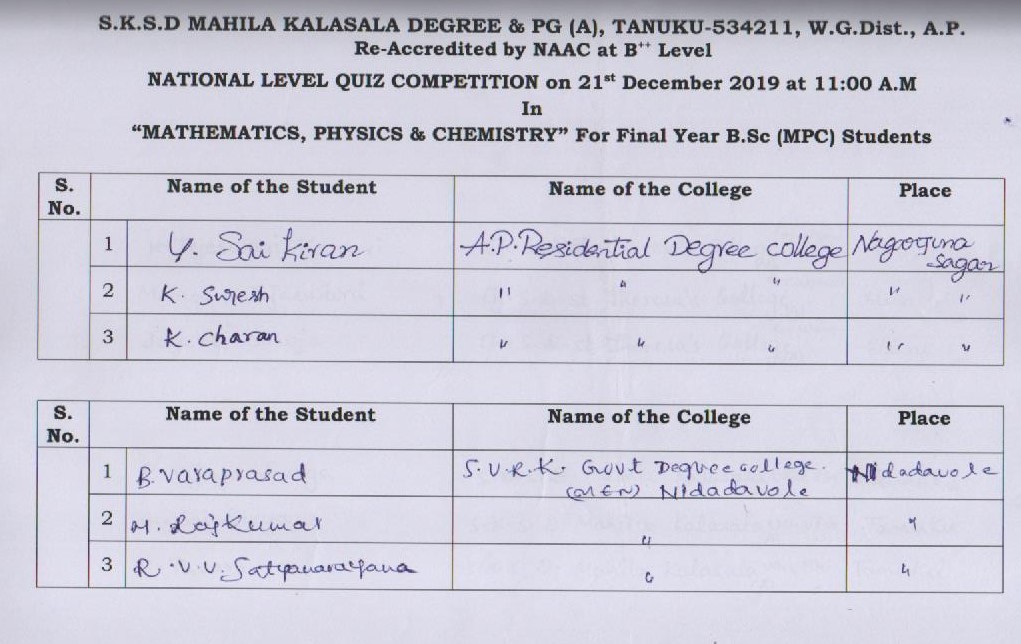 S.K.S.D MAHILA KALASALA DEGREE & PG (A), TANUKU-534211, W.G.Dist., A.P.
Re-Accredited by NAAC at B++ Level
NATIONAL LEVEL QUIZ COMPETITION on 21st December 2019 at 11:00 A.M
In
“MATHEMATICS, PHYSICS & CHEMISTRY” For Final Year B.Sc (MPC) Students
S. No. Name of the Student Name of the College Place
1 Y. Sai Kiran A.P. Residential Degree college Nagarjuna Sagar
2 K. Suresh " " " " "
3 K. charan " " " " "
S. No. Name of the Student Name of the College Place
1 B. Varaprasad S.V.R.K. Govt Degree college. Nidadavole
(MEN) Nidadavole
2 M. Rajkumar " "
3 R.V.V. Satyanarayana " "